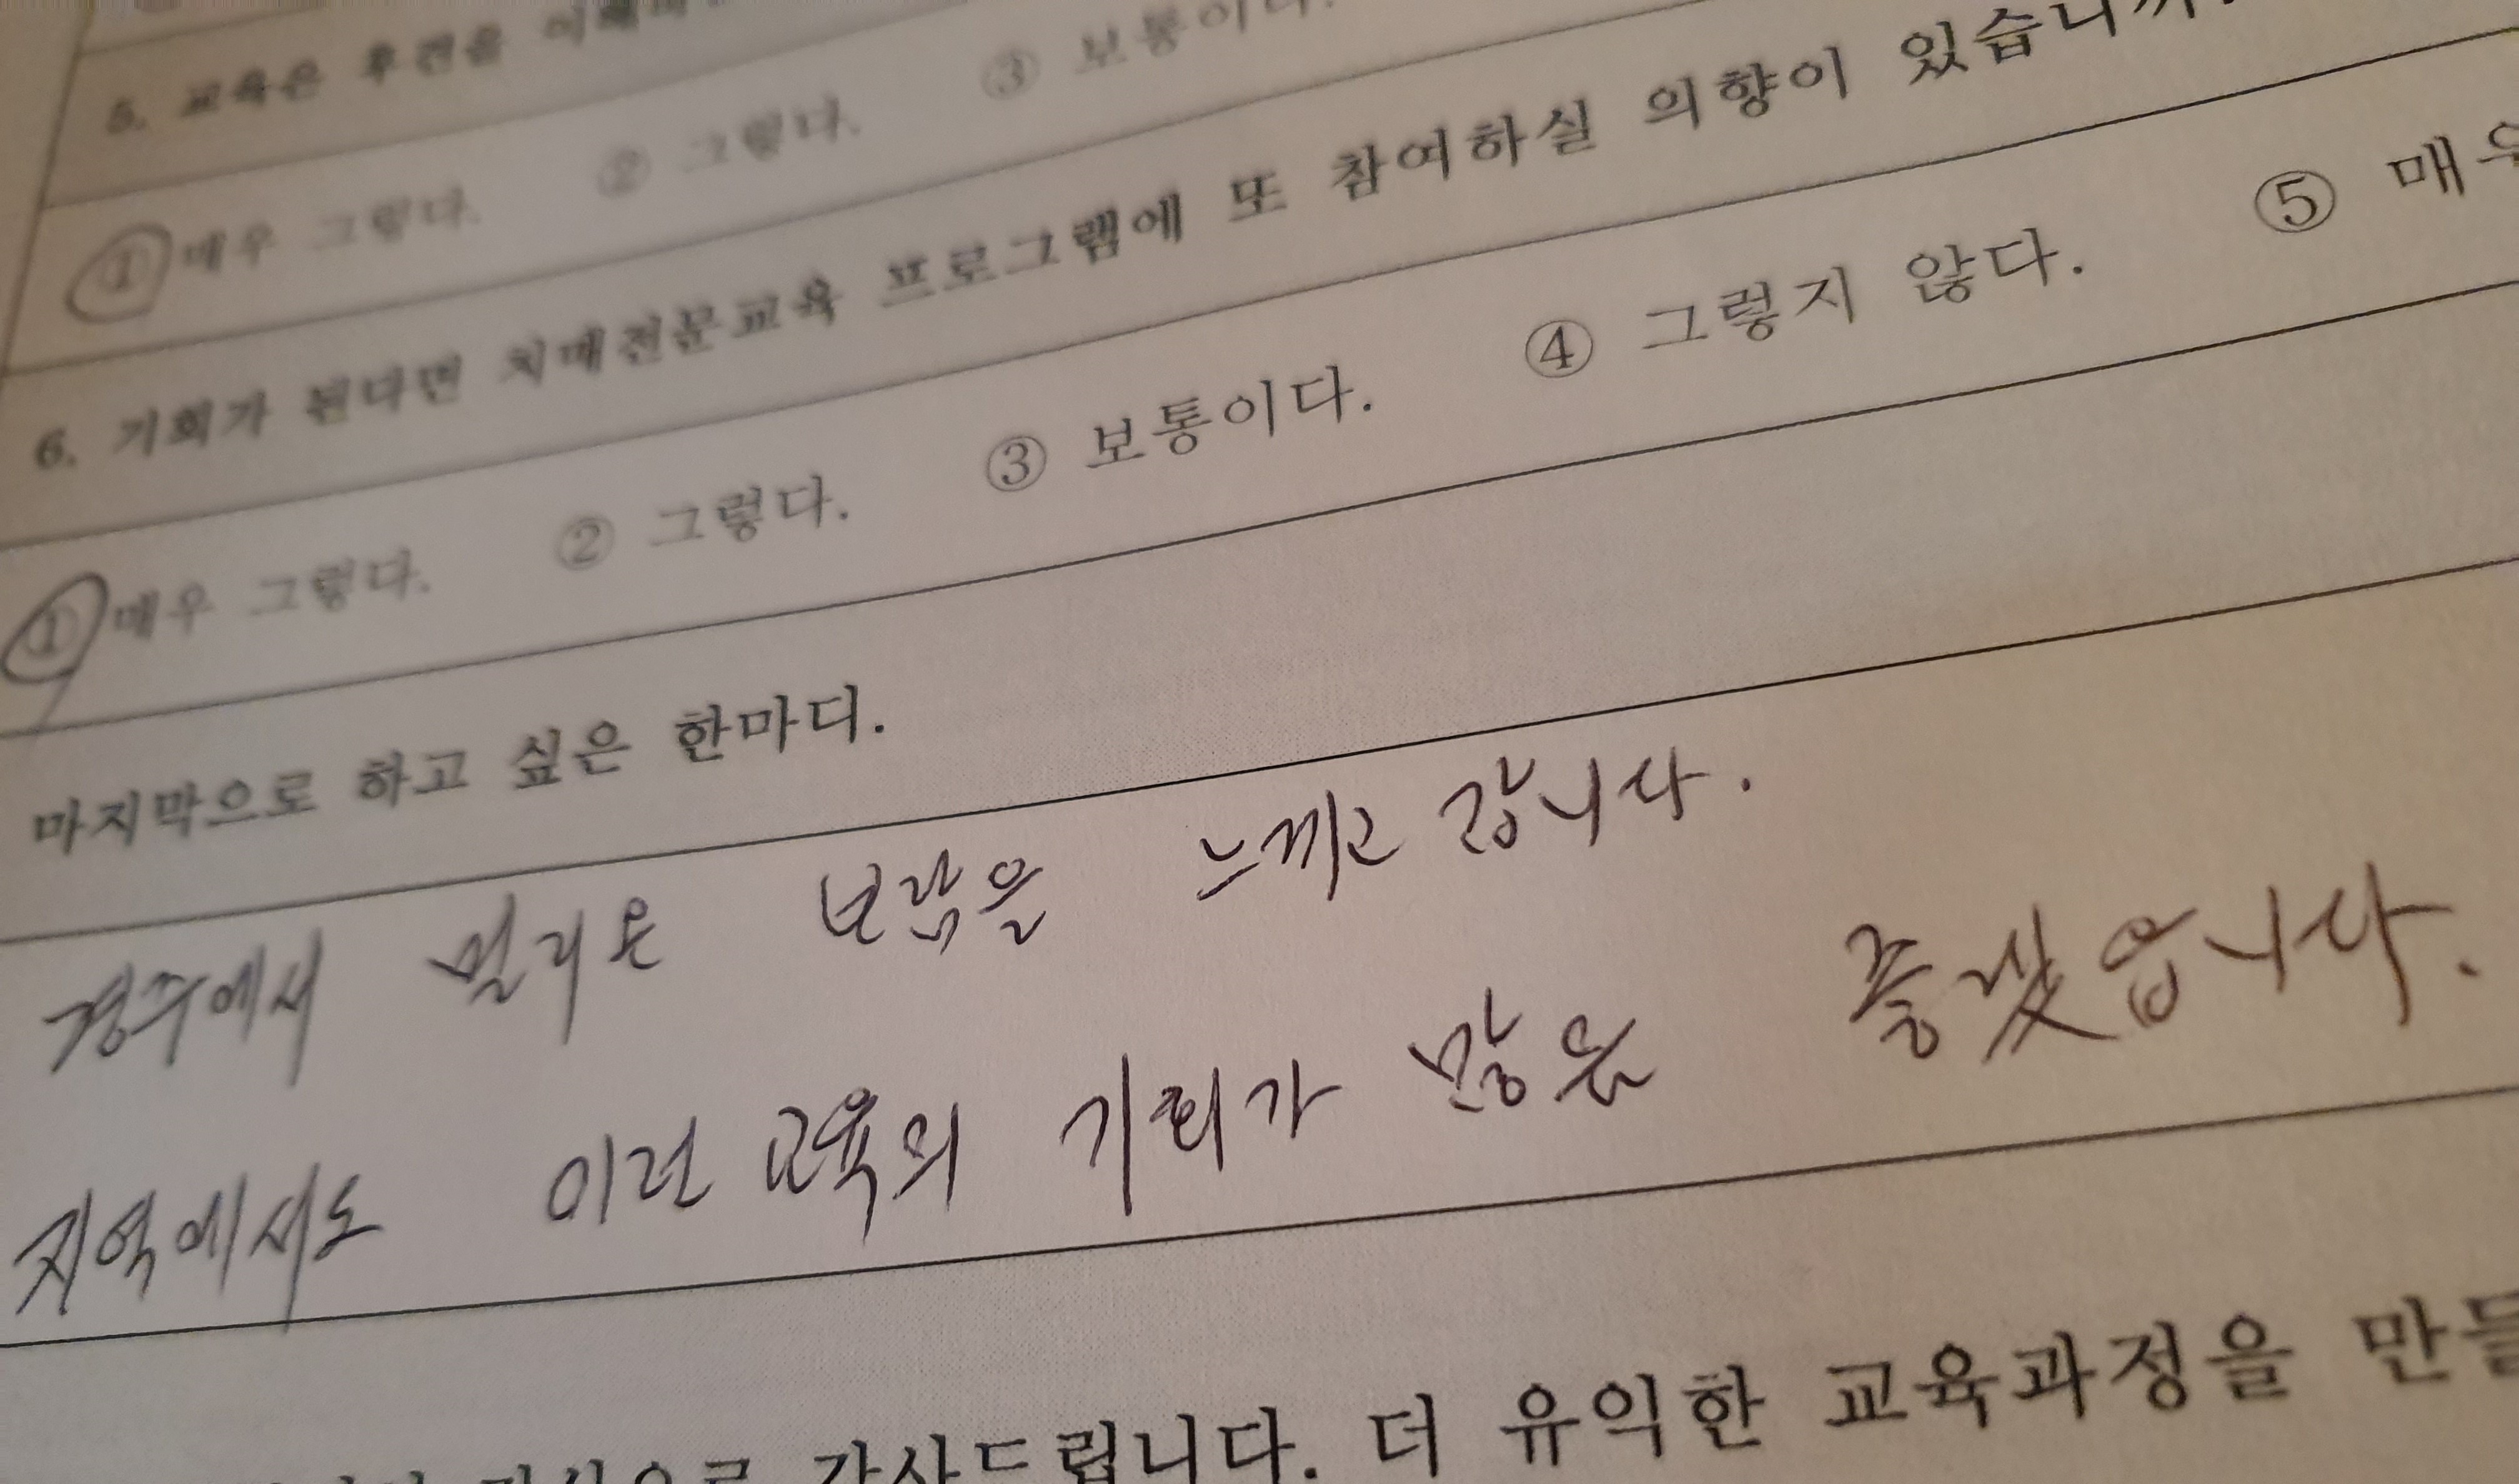 5. 교육은 후견을
① 매우 그렇다. ② 그렇다. ③ 보통이다.
6. 기회가 된다면 치매전문교육 프로그램에 또 참여하실 의향이 있습니까
① 매우 그렇다. ② 그렇다. ③ 보통이다. ④ 그렇지 않다. ⑤ 매우
마지막으로 하고 싶은 한마디.
경주에서 멀리온 보람을 느끼고 갑니다.
지역에서도 이런 교육의 기회가 많음 좋겠습니다.
감사드립니다. 더 유익한 교육과정을 만들